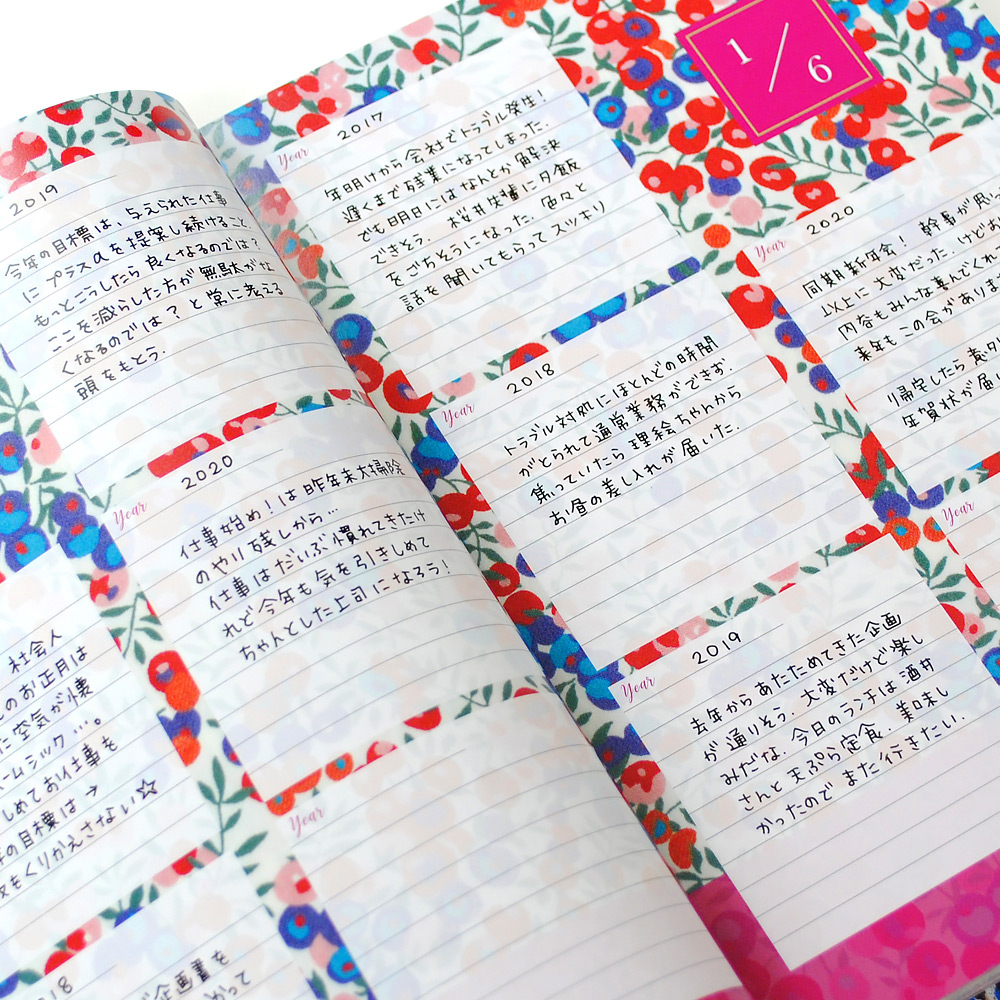 2019
今年の目標は、与えられた仕事
にプラスαを提案し続けること
もっとこうしたら良くなるのでは?
ここを減らした方が無駄がな
くなるのでは?と常に考える
頭をもとう.
Year
2020
仕事始め!は昨年末大掃除
のやり残しから…
仕事はだいぶ慣れてきたけ
れど今年も気を引きしめて
ちゃんとした上司になろう!
社会人
のお正月は
に空気が懐
ームシック…。
しめてお仕事を
の目標は→
もくりかえさない☆
Year
18
企画書を
かって
1/6
Year
2017
年明けから会社でトラブル発生!
遅くまで残業になってしまった.
でも明日にはなんとか解決
できそう. 桜井先輩に夕飯
をごちそうになった. 色々と
話を聞いてもらってスッキリ
Year
2018
トラブル対処にほとんどの時間
がとられて通常業務ができず.
焦っていたら理絵ちゃんから
お昼の差し入れが届いた.
Year
2019
去年からあたためてきた企画
が通りそう. 大変だけど楽し
みだな. 今日のランチは酒井
さんと天ぷら定食. 美味し
かったのでまた行きたい.
Year
2020
同期新年会! 幹事が思い
以上に大変だった. けどお
内容もみんな喜んでくれ
来年もこの会がありま
帰宅したら
年賀状が届い
Year